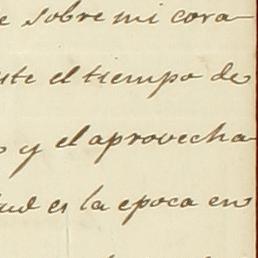 e sobre mi cora-
ste el tiempo de
y el aprovecha-
ud es la epoca en